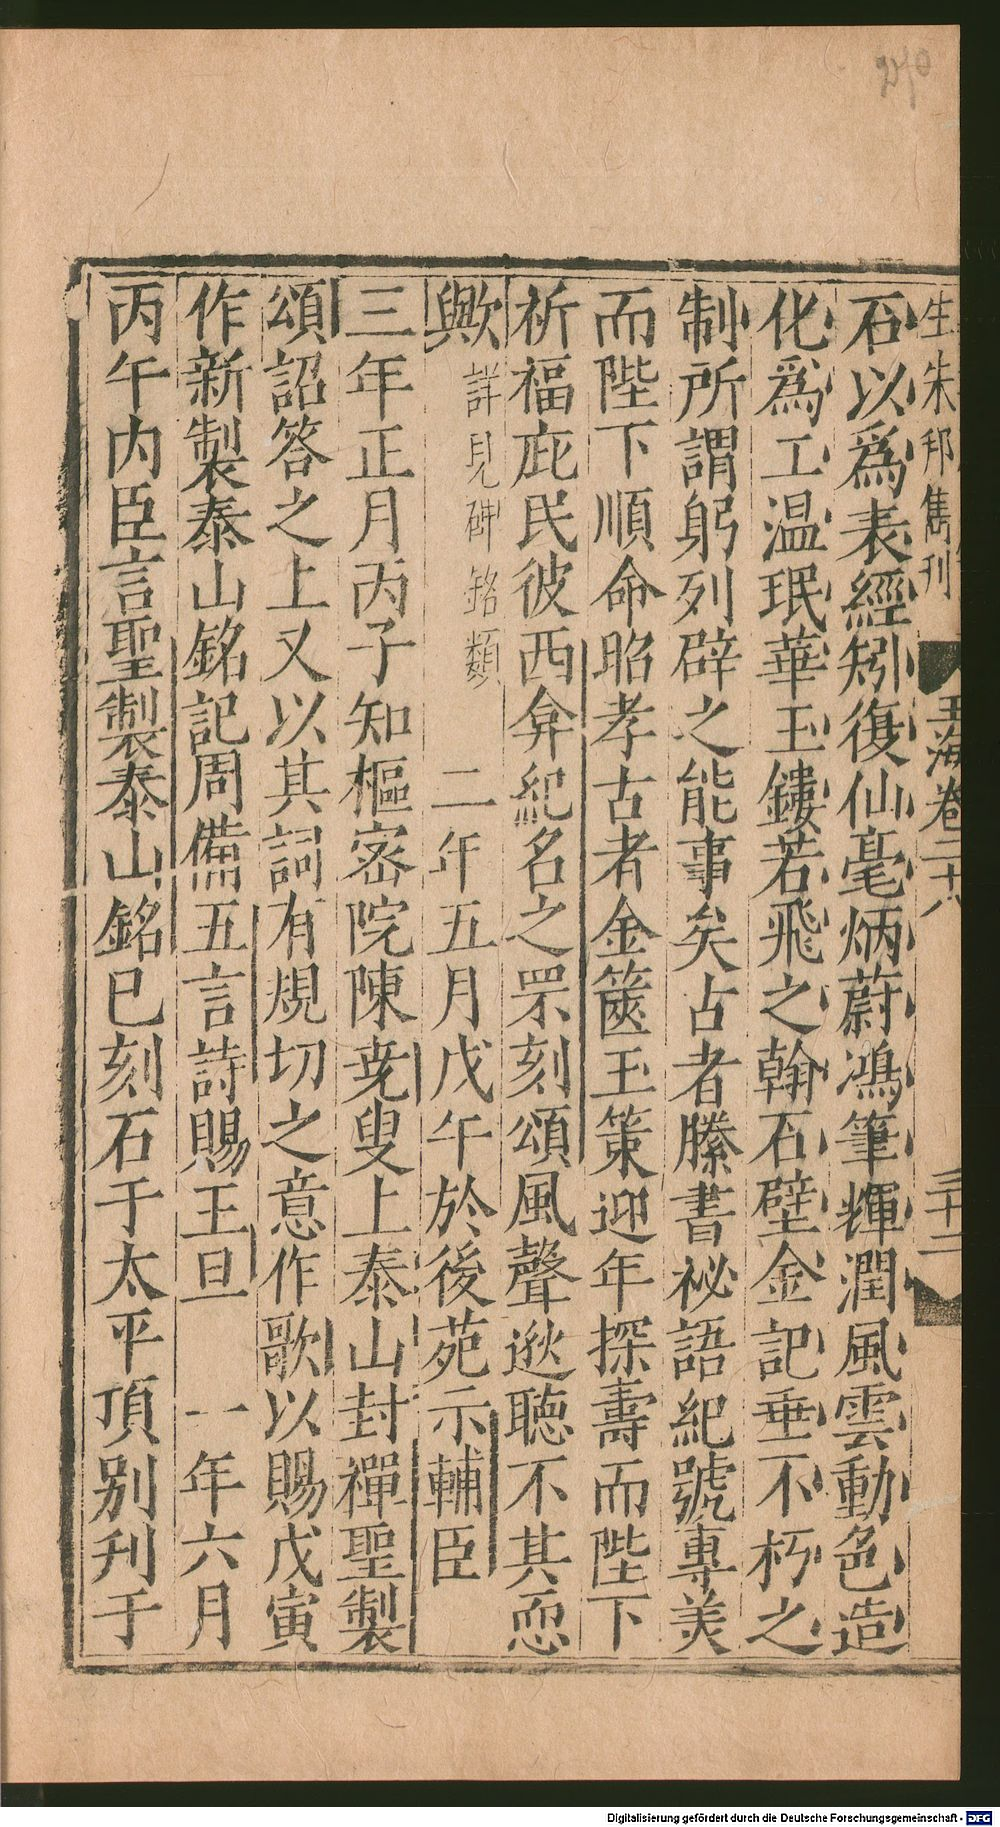 270
生朱邦雋刊 玉海卷二十八 三十二
石以爲表經矧復仙毫炳蔚鴻筆輝潤風雲動色造
化爲工温珉華玉鏤若飛之翰石壁金記垂不朽之
制所謂躬列辟之能事矣占者縢書祕語紀號專美
而陛下順命昭孝古者金篋玉策迎年探壽而陛下
祈福庇民彼西弇紀名之罘刻頌風聲逖聴不其恧
歟詳見碑銘類 二年五月戊午於後苑示輔臣
三年正月丙子知樞密院陳尭叟上泰山封禪聖製
頌詔答之上又以其詞有規切之意作歌以賜戊寅
作新製泰山銘記周備五言詩賜王旦 一年六月
丙午内臣言聖製泰山銘已刻石于太平頂别刋于
Digitalisierung gefördert durch die Deutsche Forschungsgemeinschaft - DFG